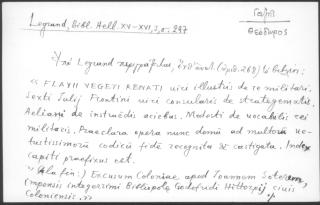 Legrand, Bibl. Hell. XV-XVI, 3, σ. 297
Γαζῆ
Θεόδωρος
Legrand περιγράφει,
« FLAVII VEGETI RENATI uiri illustris de re militari.
Sexti Julij Frontini uiri consularis de strategematis.
Aeliani de instruēdis aciebus. Modesti de uocabulis rei
militaris. Praeclara opera nunc demū ad multorū ue-
tustissimorū codicū fidē recognita & castigata. Index
capiti praefixus est.
(Ala fin:) Excusum Coloniae apud Joannum Soterem,
impensis integerrimi Bibliopolę Godefridi Hittorpij ciuis
Coloniensis. »